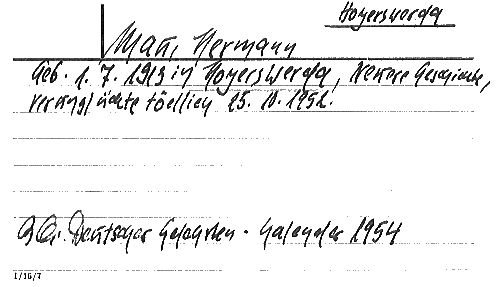 Hoyerswerda
Mau, Hermann
Geb. 1. 7. 1913 in Hoyerswerda, Neuere Geschichte,
verunglückte tödlich 25. 10. 1952.
Deutscher Gelehrten-Kalender 1954
1/16/7